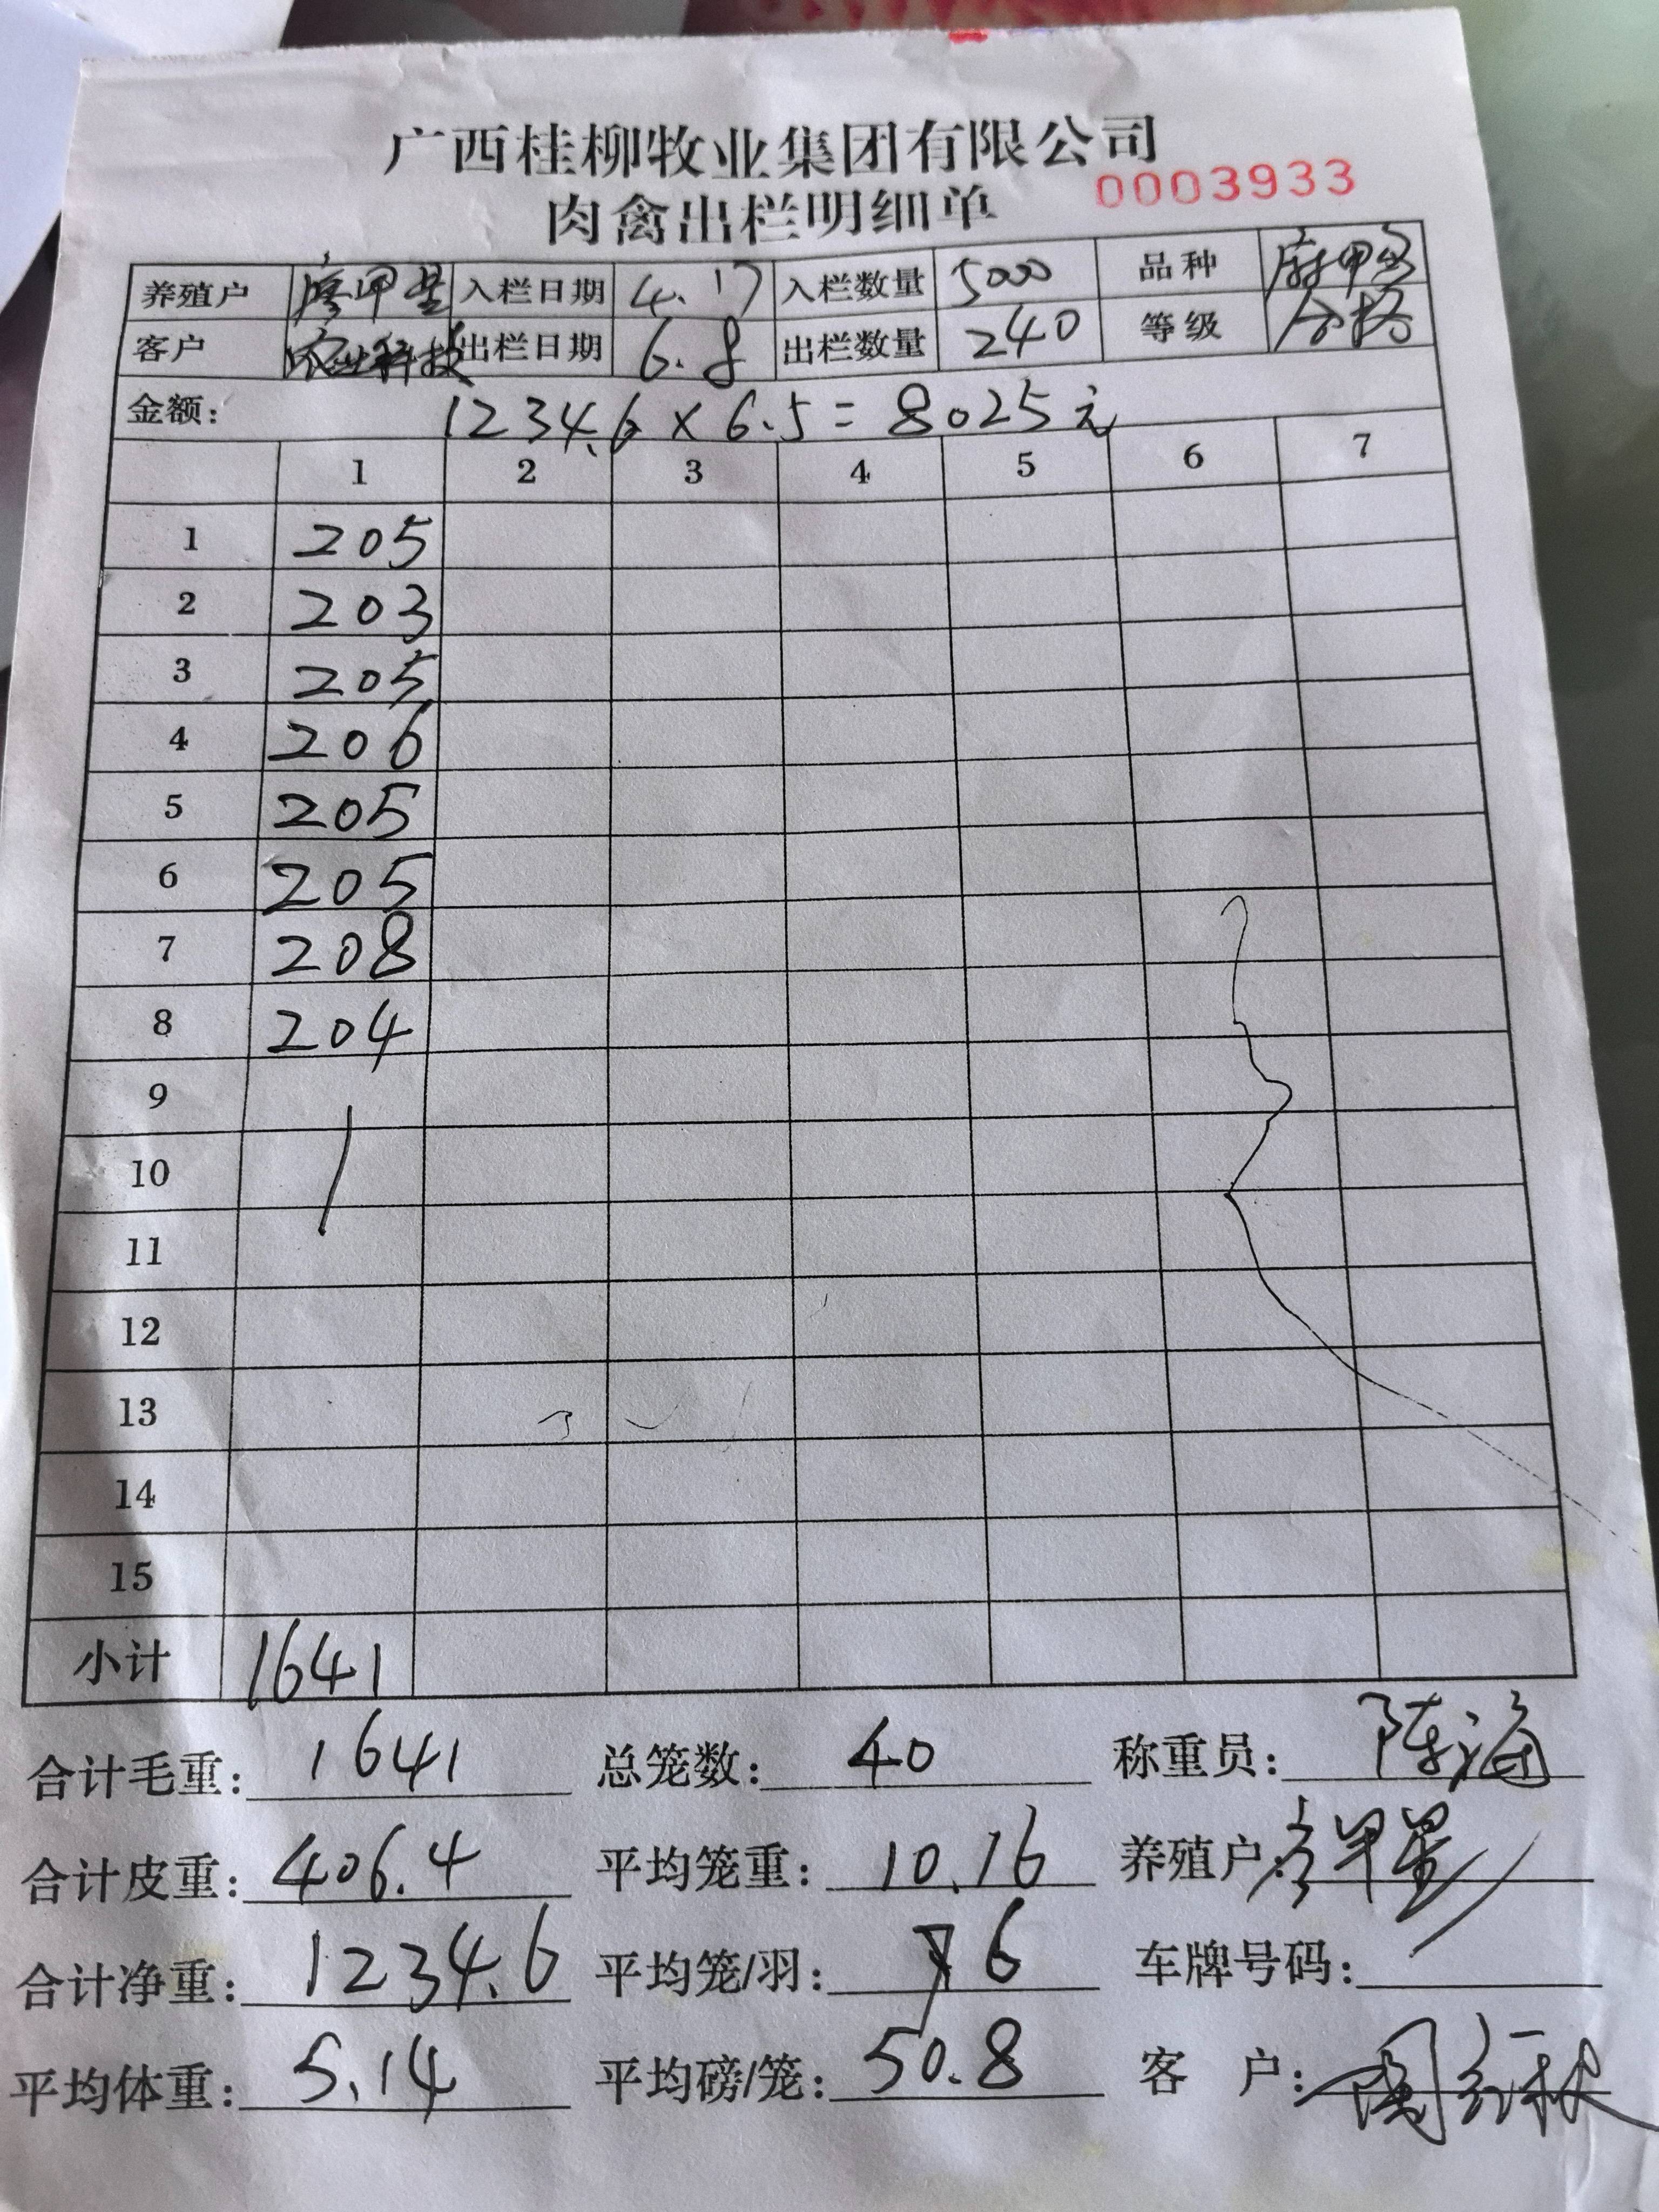 广西桂柳牧业集团有限公司
0003933
肉禽出栏明细单
养殖户 入栏日期 4.17 入栏数量 5000 品种
客户 农业科技 出栏日期 6.8 出栏数量 240 等级 合格
金额: 1234.6 × 6.5 = 8025元
1 2 3 4 5 6 7
1 205
2 203
3 205
4 206
5 205
6 205
7 208
8 204
9
10
11
12
13
14
15
小计 1641
合计毛重: 1641 总笼数: 40 称重员: 陈海
合计皮重: 406.4 平均笼重: 10.16 养殖户:
合计净重: 1234.6 平均笼/羽: 6 车牌号码:
平均体重: 5.14 平均磅/笼: 50.8 客 户: